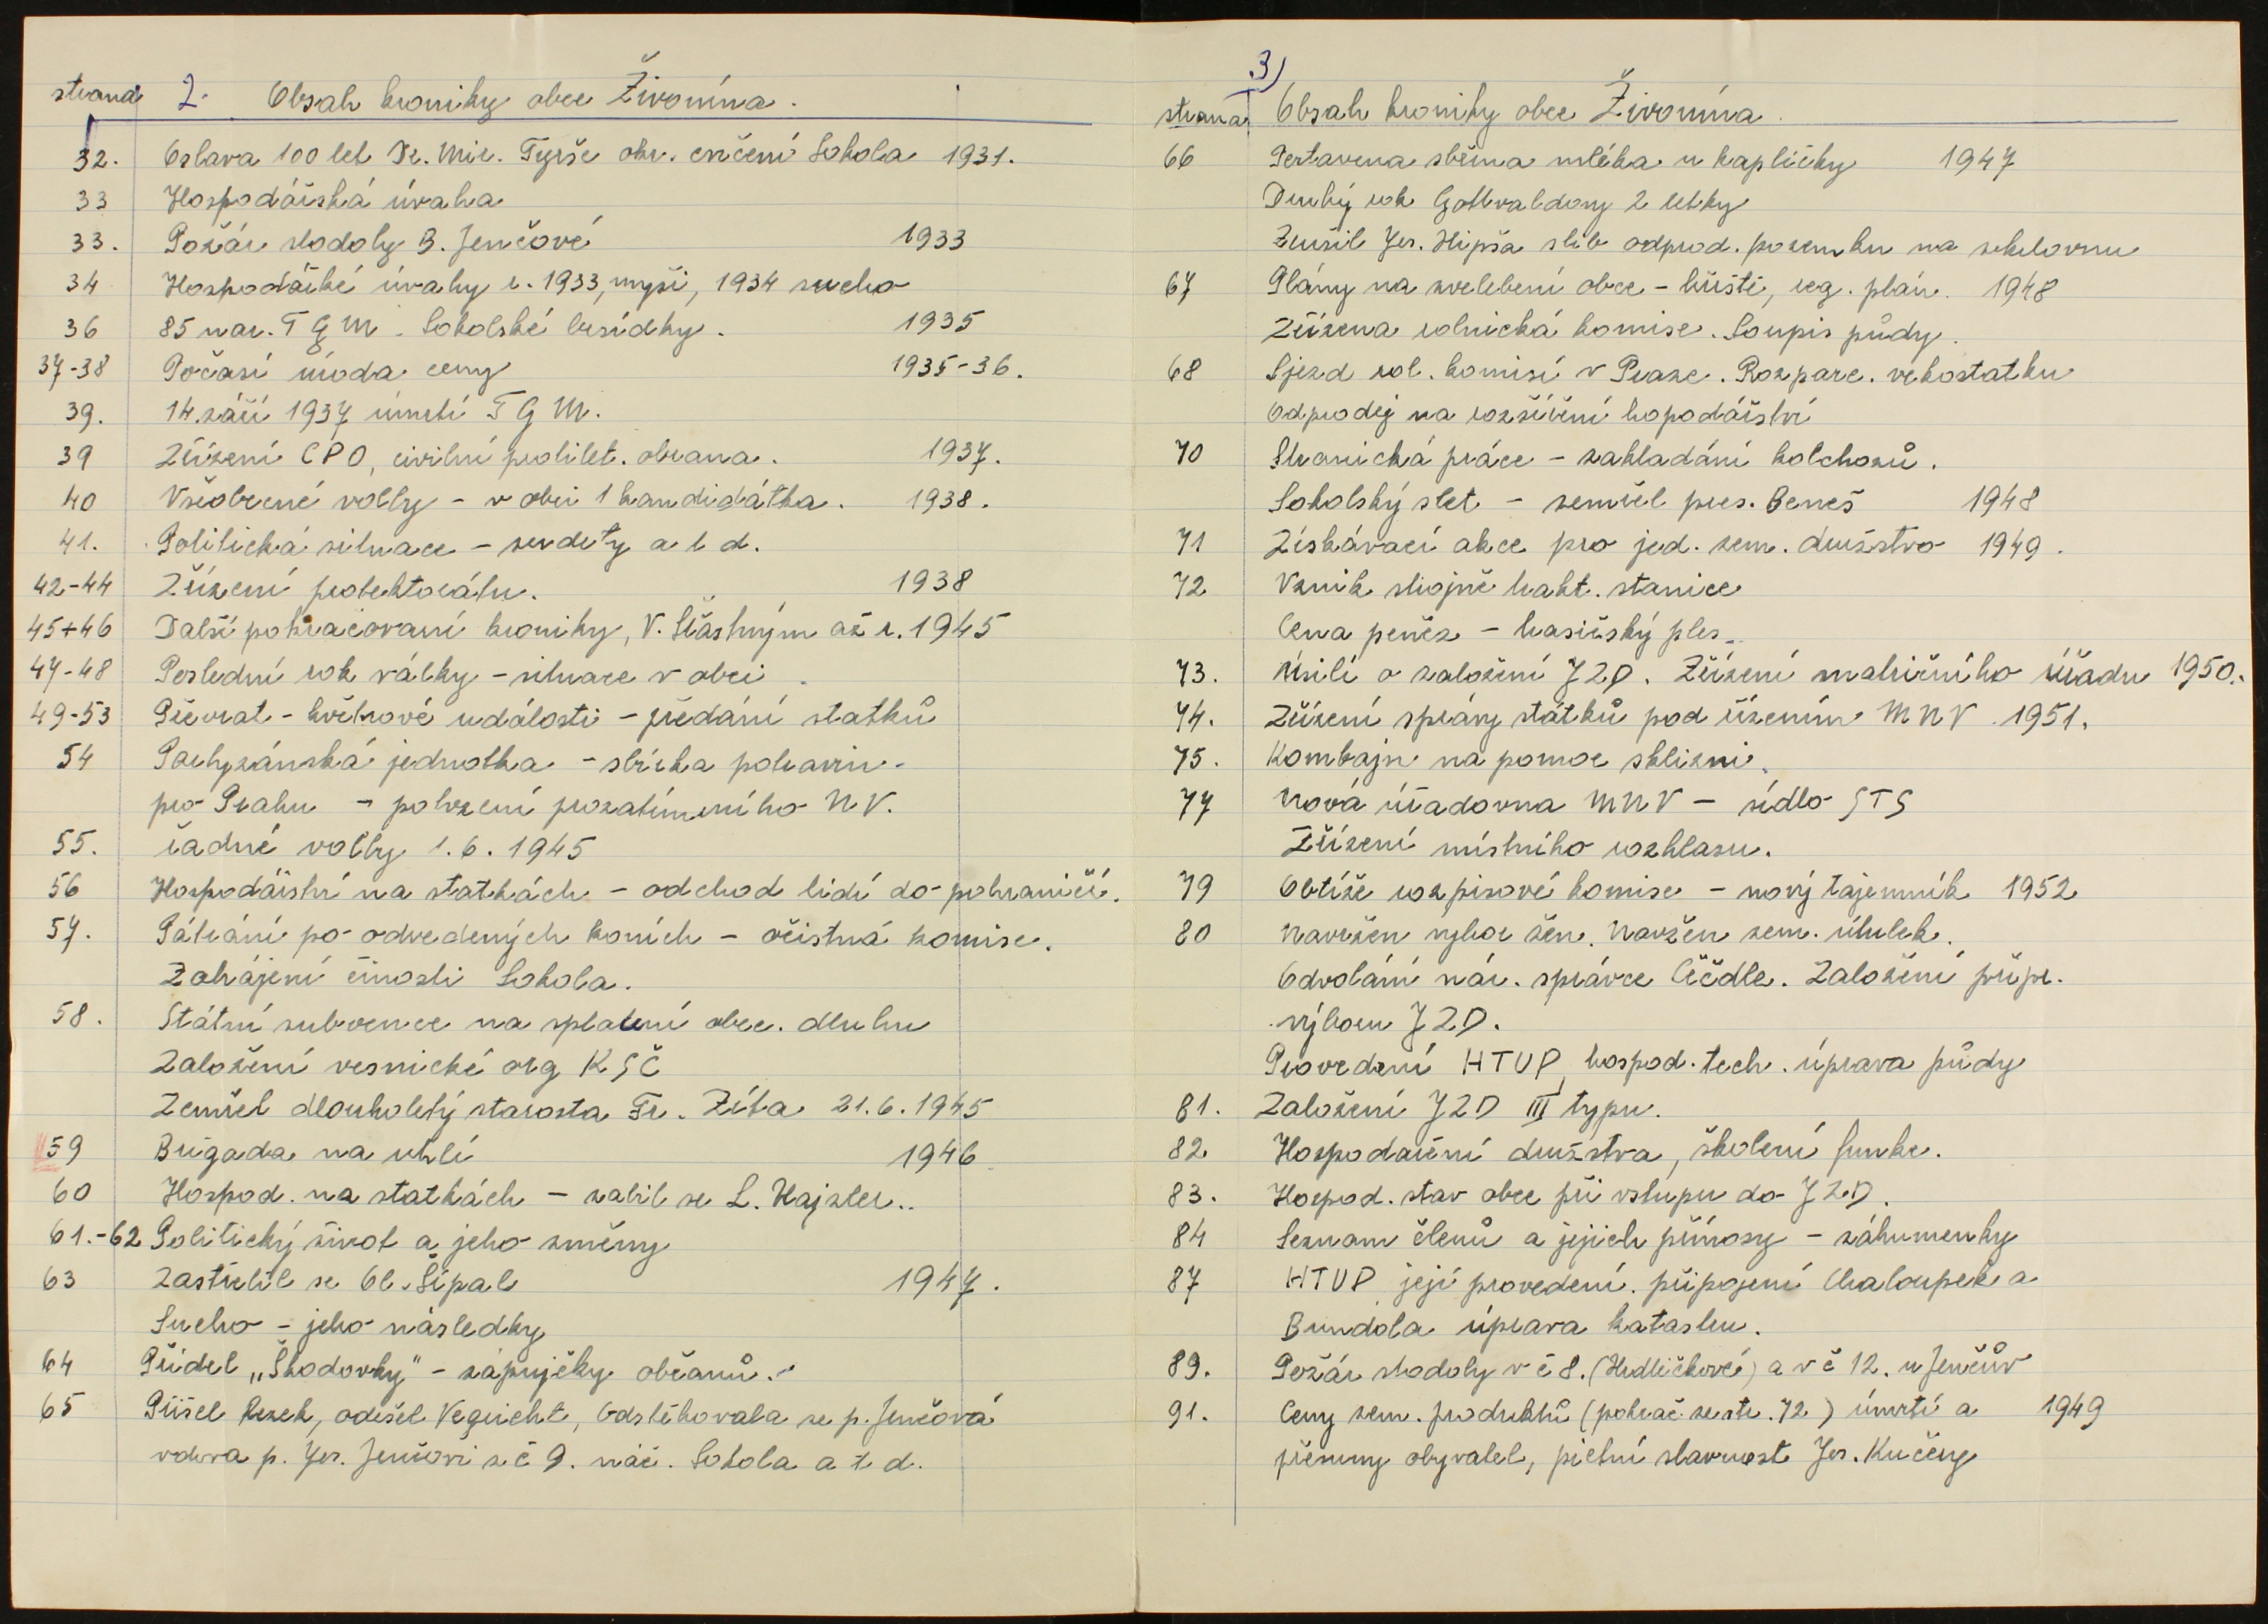 strana 2. Obsah kroniky obce Živonína.
32. Oslava 100 let Dr. Mir. Tyrše okr. cvičení Sokola 1931.
33 Hospodářská úvaha
33. Požár stodoly B. Jenčové 1933
34 Hospodářké úvahy r. 1933, myši, 1934 sucho
36 85 nar. T G M. Sokolské besídky. 1935
37-38 Počasí úroda ceny 1935-36.
39. 14. září 1937 úmrtí T G M.
39 Zřízení CPO, civilní protilet. obrana. 1937.
40 Všeobecné volby - v obci 1 kandidátka. 1938.
41. Politická situace - sudety a t d.
42-44 Zřízení protektorátu. 1938
45+46 Další pokračovaní kroniky, V. Šťastným až r. 1945
47-48 Poslední rok války - situace v obci.
49-53 Převrat - květnové události - předání statků
54 Partyzánská jednotka - sbírka potravin
pro Prahu - potvrzení prozatímního NV.
55. řadné volby 1.6.1945
56 Hospodářství na statkách - odchod lidí do pohraničí.
57. Pátrání po odvedených koních - očistná komise.
Zahájení činosti Sokola.
58. Státní subvence na splacení obec. dluhu
Založení vesnické org KSČ
Zemřel dlouholetý starosta Fr. Zíta 21.6.1945
59 Brigada na uhlí 1946
60 Hospod. na statkách - zabil se L. Hajzler..
61.-62 Politický život a jeho změny
63 Zastřelil se Ol. Šípal 1947.
Sucho - jeho následky
64 Příděl „Škodovky" - zápujčky občanů.
65 Přišel Rezek, odešel Veguicht, Odstěhovala se p. Jenčová
vdova p. Jos. Jenčovi z č 9. náč. Sokola a t d.
3)
strana Obsah kroniky obce Živonína.
66 Postavena sběrna mléka u kapličky 1947
Druhý rok Gottvaldovy 2 letky
Zrušil Jos. Hipša slib odprod. pozemku na sokolovnu
67 Plány na zvelebení obce - hřiště, reg. plán. 1948
Zřízena rolnická komise. Soupis půdy.
68 Sjezd rol. komisí v Praze. Rozparc. vekostatku
Odprodej na rozšíření hopodářství
70 Stranická práce - zakladání kolchozů.
Sokolský slet - zemřel pres. Beneš 1948
71 Získávací akce pro jed. zem. družstvo 1949.
72 Vznik strojně trakt. stanice
Cena peněz - hasičský ples.
73. Úsilí o založení JZD. Zřízení matričního úřadu 1950.
74. Zřízení správy státků pod řízením MNV. 1951.
75. Kombajn na pomoc sklizni.
77 Nová úřadovna MNV - sídlo STS
Zřízení místního rozhlasu.
79 Obtíže rozpisové komise - nový tajemník 1952
80 Navržen vybor žen. Navžen zem. útulek.
Odvolání nár. správce Ččdle. Založení přípr.
výboru JZD.
Provedení HTUP, hospod. tech. úprava půdy
81. Založení JZD III typu.
82 Hospodaření družstva, školení funkc.
83. Hospod. stav obce při vstupu do JZD.
84 Seznam členů a jejich přínosy - záhumenky
87 HTUP její provedení. připojení Chaloupek a
Bundola úprava katastru.
89. Požár stodoly v č 8. (Hrdličkové) a v č 12. u Jenčův
91. Ceny zem. produktů (pokrač. ze str. 72) úmrtí a 1949
přesuny obyvatel, pietní slavnost Jos. Kučery